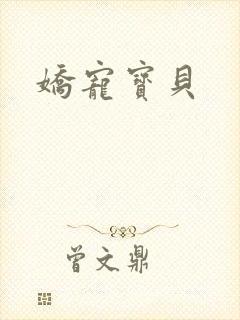 嬌寵寶貝
曾文鼎